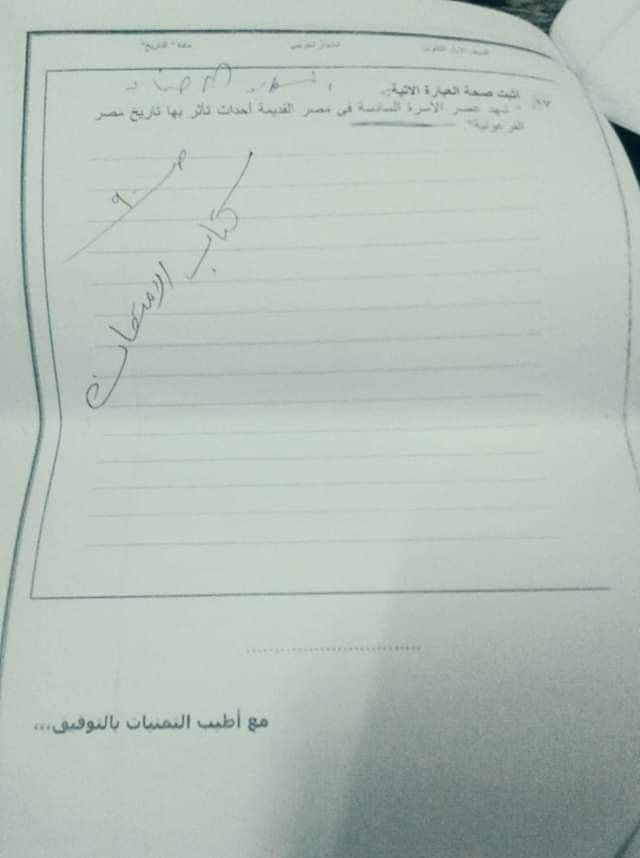 الصف الأول الثانوي مادة "التاريخ"
١٧. إثبت صحة العبارة الآتية:.
" شهد عصر الأسرة السادسة في مصر القديمة أحداث تأثر بها تاريخ مصر
الفرعونية".
ص ٩
كتاب الامتحان
مع أطيب التمنيات بالتوفيق...